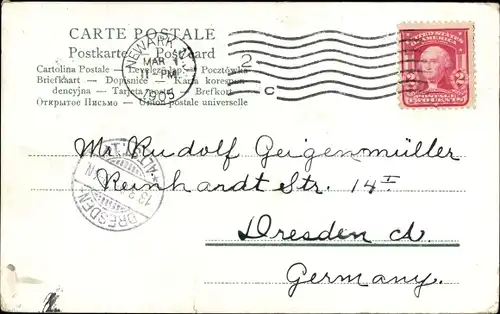 CARTE POSTALE
Postkarte — Postcard
Cartolina Postale — Levelező-lap. — Pocztówka
Briefkaart — Dopisnice — Karta korespon-
dencyjna — Tarjeta postal — Brefkort
Открытое Письмо — Union postale universelle
NEWARK, N.J.
MAR 1
PM
1905
2
C
UNITED STATES
OF AMERICA
2 2
POSTAGE
TWO CENTS
Mr. Rudolf Geigenmüller
Reinhardt Str. 14 I
Dresden A.
Germany.
DRESDEN
ALTST.